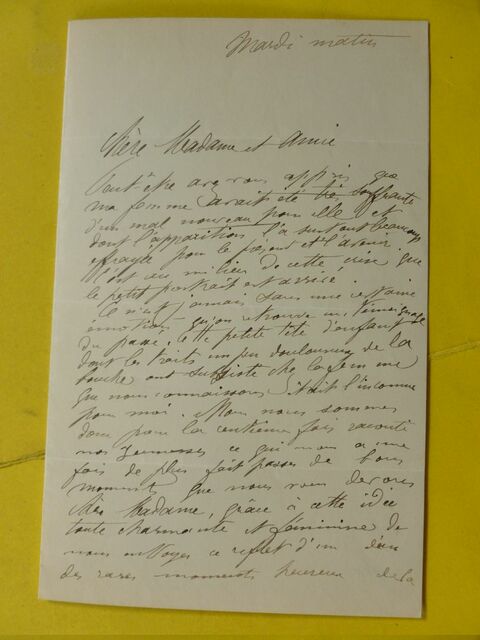 Mardi matin
Chère Madame et Amie
Peut être avez vous appris que
ma femme avait été très souffrante
d'un mal nouveau pour elle et
dont l'apparition l'a surtout beaucoup
effrayée pour le présent et l'avenir.
C'est au milieu de cette crise que
le petit portrait est arrivé.
Ce n'est jamais sans une certaine
émotion qu'on retrouve un témoignage
du passé. Cette petite tête d'enfant
dont les traits un peu douloureux de la
bouche ont subsisté chez la femme
que nous connaissons était l'inconnue
pour moi. Nous nous sommes
donc pour la centième fois raconté
nos jeunesses ce qui nous a une
fois de plus fait passer de bons
moments que nous vous devons
chère Madame, grâce à cette idée
toute charmante et féminine de
nous envoyer ce reflet d'un
des rares moments heureux de la